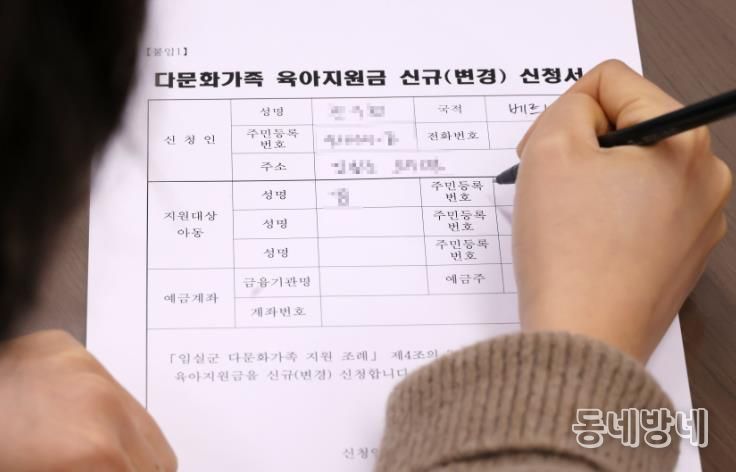 [붙임1]
다문화가족 육아지원금 신규(변경) 신청서
신 청 인
성명
국적
주민등록
번호
전화번호
주소
지원대상
아동
성명
주민등록
번호
성명
주민등록
번호
성명
주민등록
번호
예금계좌
금융기관명
예금주
계좌번호
「임실군 다문화가족 지원 조례」 제4조의
육아지원금을 신규(변경) 신청합니다
신청인
동네방네